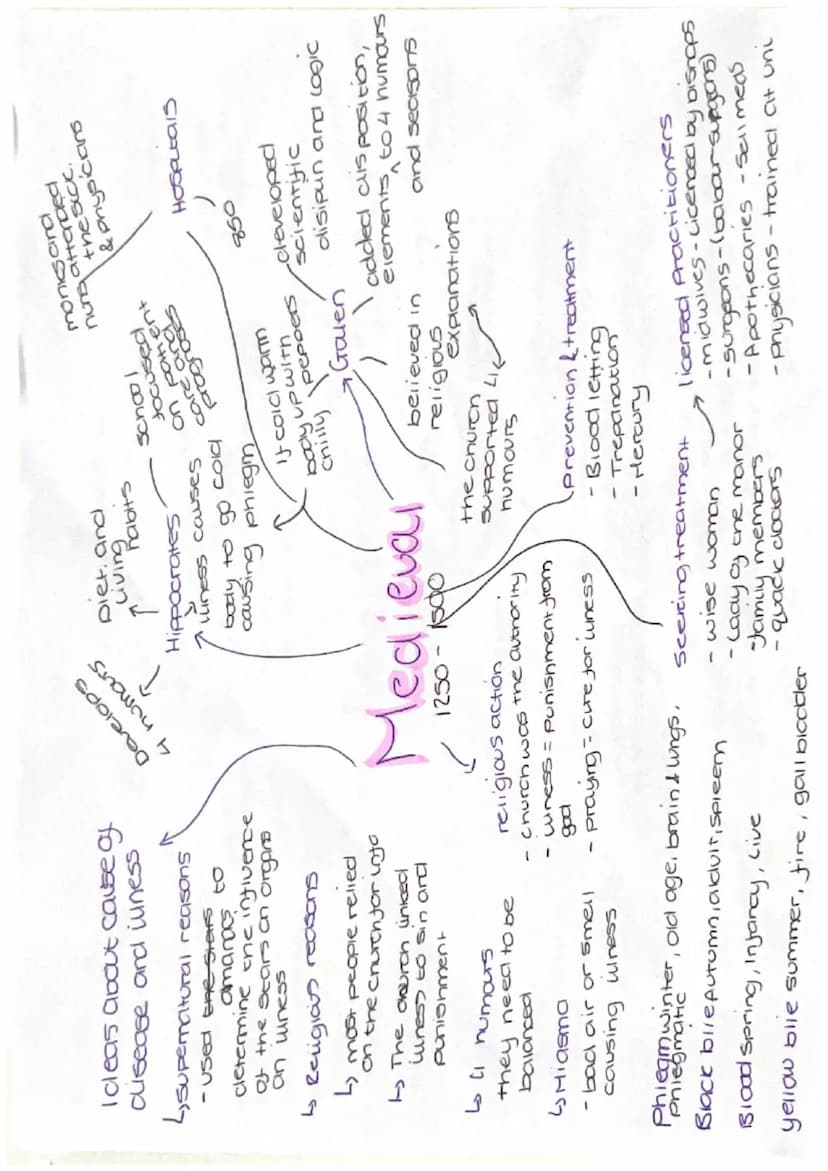 Ideas about cause of
disease and illness
↳ supernatural reasons
- used the stars to
amanac,
determine the influence
of the stars on organs
on illness
↳ Religious reasons
↳ most people relied
on the church for info
↳ The church linked
illness to sin and
punishment
↳ 4 humours
they need to be
balanced
↳ Miasma
- bad air or smell
causing illness
Medieval
1250 - 1500
religious action
- church was the authority
- illness = punishment from
god
- praying = cure for illness
Hippocrates
Develops
4 humours
Diet and
living
habits
school
focused
on patient
care
illness causes
body to go cold
causing phlegm
if cold warm
body up with
chilly peppers
Hospitals
monks and
nuns attended
the sick.
& physicians
Galen
developed
scientific
disipun and logic
added disposition,
elements, to 4 humours
and seasons
believed in
religious
explanations
the church
supported 4
humours
Prevention & treatment
- Blood letting
- Trepanation
- Mercury
Seeking treatment
- wise woman
- Lady of the manor
- family members
- quack doctors
licensed Practitioners
- midwives - Licenced by bishops
- surgeons - (babour-surgeons)
- Apothecaries - sell meds
- Physicians - trained at uni
Phlegm winter, old age, brain & lungs,
phlegmatic
Black bile Autumn, adult, spleem
Blood spring, Infancy, Live
yellow bile summer, fire, gall bladder